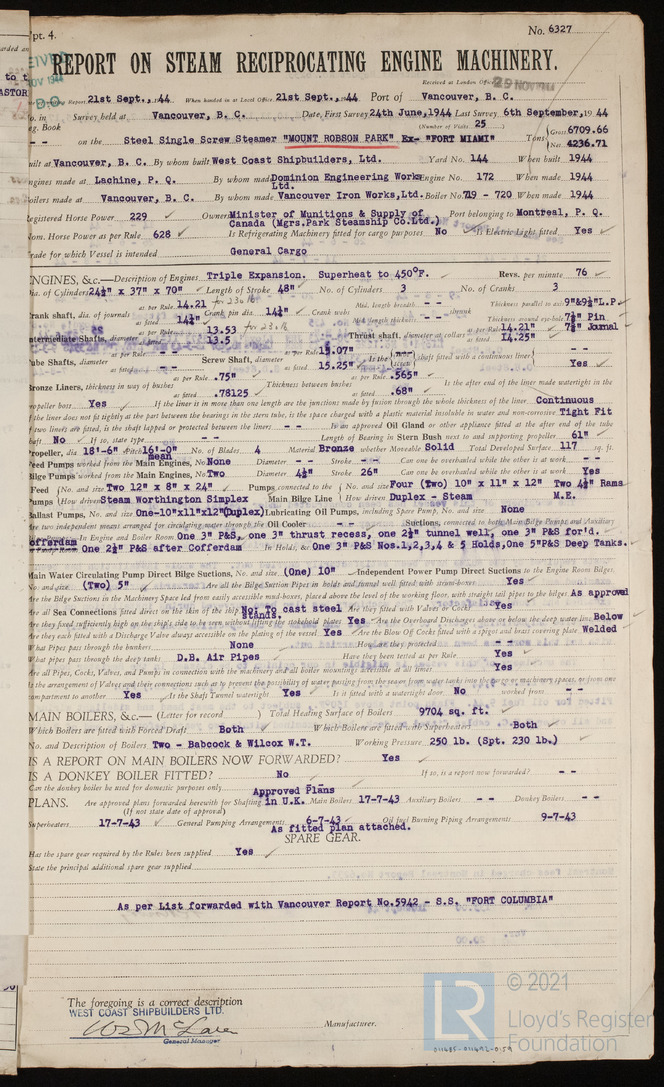 Rpt. 4.
No. 6327
REPORT ON STEAM RECIPROCATING ENGINE MACHINERY.
Received at London Office 29 NOV 1944
Report 21st Sept., 44 When handed in at Local Office 21st Sept., 44 Port of Vancouver, B. C.
No. in Survey held at Vancouver, B. C. Date, First Survey 24th June, 1944 Last Survey 6th September, 1944
Reg. Book (Number of Visits 25
on the Steel Single Screw Steamer "MOUNT ROBSON PARK" Ex- "FORT MIAMI" Tons Gross 6709.66
Net 4236.71
Built at Vancouver, B. C. By whom built West Coast Shipbuilders, Ltd. Yard No. 144 When built 1944
Engines made at Lachine, P. Q. By whom made Dominion Engineering Works Ltd. Engine No. 172 When made 1944
Boilers made at Vancouver, B. C. By whom made Vancouver Iron Works, Ltd. Boiler No. 719 - 720 When made 1944
Registered Horse Power 229 Owners Minister of Munitions & Supply of Canada (Mgrs. Park Steamship Co. Ltd.) Port belonging to Montreal, P. Q.
Nom. Horse Power as per Rule 628 Is Refrigerating Machinery fitted for cargo purposes No Is Electric Light fitted Yes
Trade for which Vessel is intended General Cargo
ENGINES, &c.—Description of Engines Triple Expansion. Superheat to 450°F. Revs. per minute 76
Dia. of Cylinders 24½" x 37" x 70" Length of Stroke 48" No. of Cylinders 3 No. of Cranks 3
Crank shaft, dia. of journals as per Rule 14.21 as fitted 14½" Crank pin dia. 14½" Crank webs Mid. length breadth - - Mid. length thickness - - shrunk Thickness parallel to axis 9"&9½"L.P. Thickness around eye-hole 7⅞" Pin 7⅞" Journal
Intermediate Shafts, diameter as per Rule 13.53 as fitted 13.5 Thrust shaft, diameter at collars as per Rule 14.21" as fitted 14.25"
Tube Shafts, diameter as per Rule - - as fitted - - Screw Shaft, diameter as per Rule 15.07" as fitted 15.25" Is the shaft fitted with a continuous liner Yes
Bronze Liners, thickness in way of bushes as per Rule .75" as fitted .78125 Thickness between bushes as per Rule .565" as fitted .68" Is the after end of the liner made watertight in the
propeller boss Yes If the liner is in more than one length are the junctions made by fusion through the whole thickness of the liner Continuous
If the liner does not fit tightly at the part between the bearings in the stern tube, is the space charged with a plastic material insoluble in water and non-corrosive Tight Fit
If two liners are fitted, is the shaft lapped or protected between the liners - - Is an approved Oil Gland or other appliance fitted at the after end of the tube
shaft No If so, state type - - Length of Bearing in Stern Bush next to and supporting propeller 61"
Propeller, dia 18'-6" Pitch 16'-0" Mean No. of Blades 4 Material Bronze whether Moveable Solid Total Developed Surface 117 sq. ft.
Feed Pumps worked from the Main Engines, No None Diameter - - Stroke - - Can one be overhauled while the other is at work - -
Bilge Pumps worked from the Main Engines, No Two Diameter 4½" Stroke 26" Can one be overhauled while the other is at work Yes
Feed Pumps No. and size Two 12" x 8" x 24" How driven Steam Worthington Simplex Pumps connected to the Main Bilge Line No. and size Four (Two) 10" x 11" x 12" Two 4½" Rams How driven Duplex - Steam M.E.
Ballast Pumps, No. and size One-10"x11"x12"(Duplex) Lubricating Oil Pumps, including Spare Pump, No. and size None
Are two independent means arranged for circulating water through the Oil Cooler - - Suctions, connected to both Main Bilge Pumps and Auxiliary
Bilge Pumps:—In Engine and Boiler Room One 3" P&S, one 3" thrust recess, one 2½" tunnel well, one 3" P&S for'd.
Cofferdam One 2½" P&S after Cofferdam In Holds, &c One 3" P&S Nos.1,2,3,4 & 5 Holds, One 5"P&S Deep Tanks.
Main Water Circulating Pump Direct Bilge Suctions, No. and size (One) 10" Independent Power Pump Direct Suctions to the Engine Room Bilges,
No. and size (Two) 5" Are all the Bilge Suction Pipes in holds and tunnel well fitted with strum-boxes Yes
Are the Bilge Suctions in the Machinery Space led from easily accessible mud-boxes, placed above the level of the working floor, with straight tail pipes to the bilges As approved
Are all Sea Connections fitted direct on the skin of the ship No: To cast steel stands. Are they fitted with Valves or Cocks Yes
Are they fixed sufficiently high on the ship's side to be seen without lifting the stokehold plates Yes Are the Overboard Discharges above or below the deep water line Below
Are they each fitted with a Discharge Valve always accessible on the plating of the vessel Yes Are the Blow Off Cocks fitted with a spigot and brass covering plate Welded
What Pipes pass through the bunkers None How are they protected - -
What pipes pass through the deep tanks D.B. Air Pipes Have they been tested as per Rule Yes
Are all Pipes, Cocks, Valves, and Pumps in connection with the machinery and all boiler mountings accessible at all times Yes
Is the arrangement of Valves and their connections such as to prevent the possibility of water passing from the sea or from water tanks into the cargo or machinery spaces, or from one
compartment to another Yes Is the Shaft Tunnel watertight Yes Is it fitted with a watertight door No worked from - -
MAIN BOILERS, &c.—(Letter for record ) Total Heating Surface of Boilers 9704 sq. ft.
Which Boilers are fitted with Forced Draft Both Which Boilers are fitted with Superheaters Both
No. and Description of Boilers Two - Babcock & Wilcox W.T. Working Pressure 250 lb. (Spt. 230 lb.)
IS A REPORT ON MAIN BOILERS NOW FORWARDED? Yes
IS A DONKEY BOILER FITTED? No If so, is a report now forwarded? - -
Can the donkey boiler be used for domestic purposes only
PLANS. Are approved plans forwarded herewith for Shafting Approved Plans in U.K. Main Boilers 17-7-43 Auxiliary Boilers - - Donkey Boilers - -
(If not state date of approval)
Superheaters 17-7-43 General Pumping Arrangements 6-7-43 Oil fuel Burning Piping Arrangements 9-7-43
As fitted plan attached.
SPARE GEAR.
Has the spare gear required by the Rules been supplied Yes
State the principal additional spare gear supplied
As per List forwarded with Vancouver Report No.5942 - S.S. "FORT COLUMBIA"
The foregoing is a correct description
WEST COAST SHIPBUILDERS LTD.
General Manager
Manufacturer.
LR
© 2021
Lloyd's Register
Foundation
011485-011492-0159